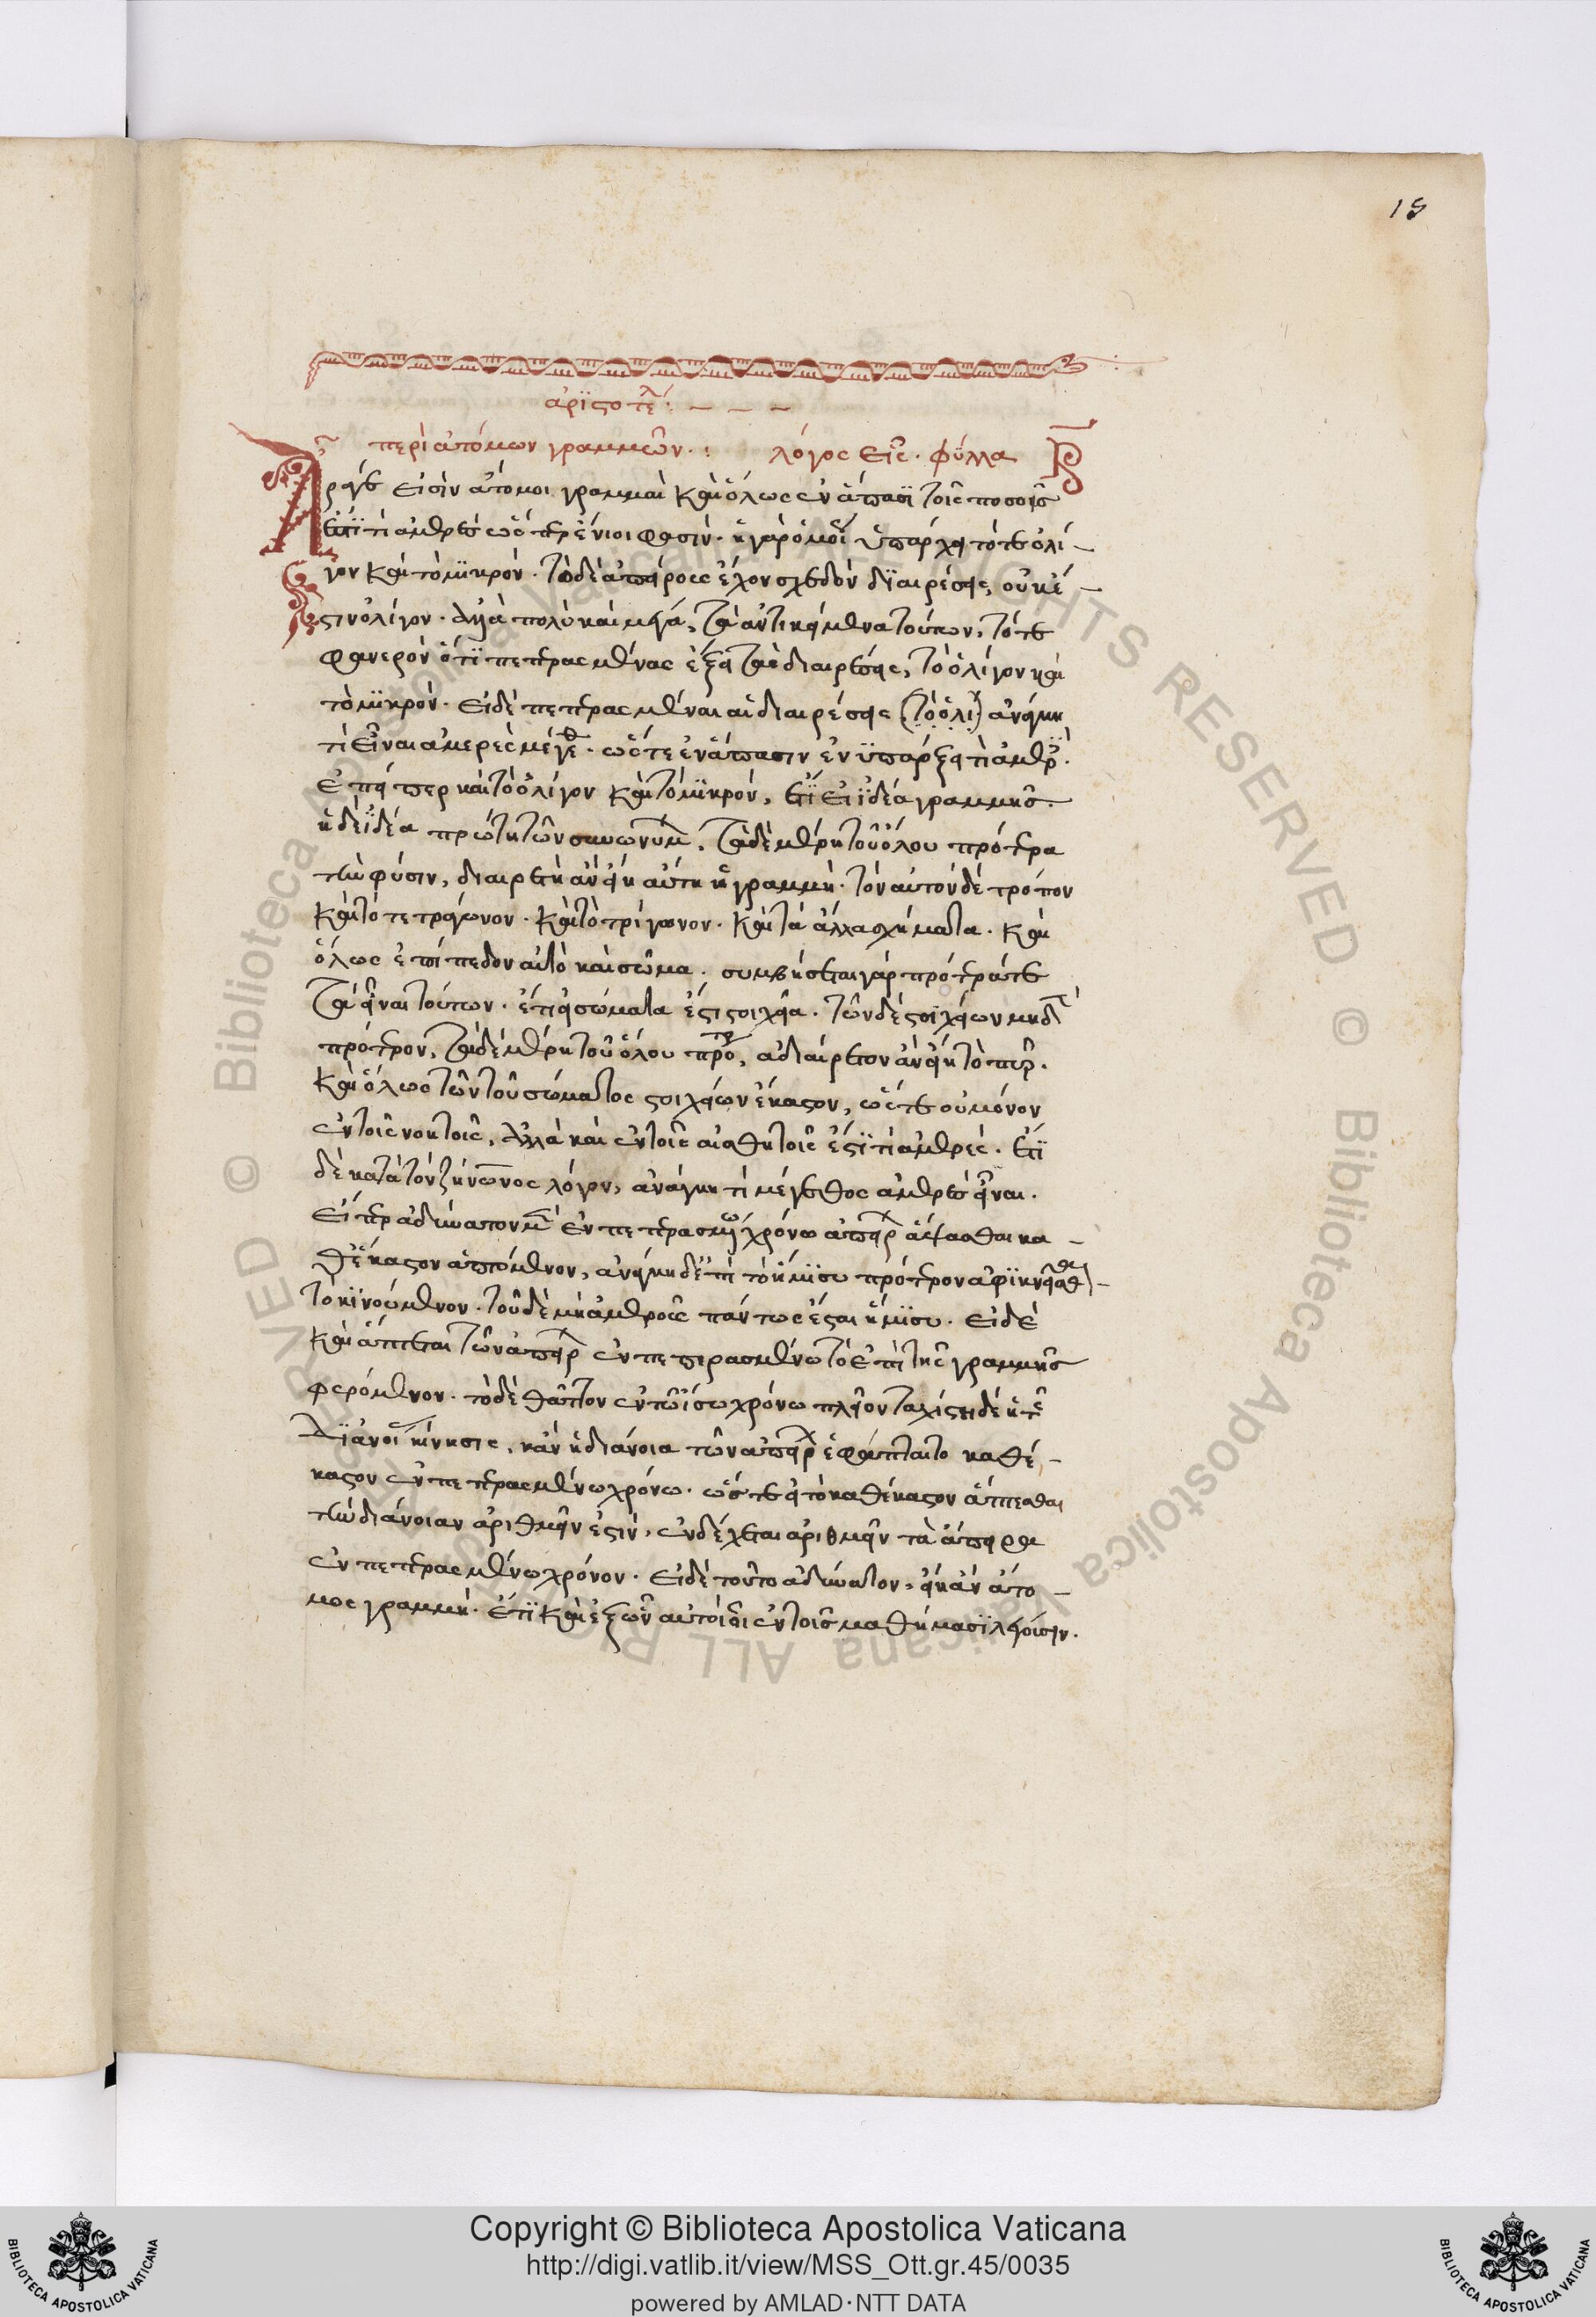 18
ἀρϊστοτελ :
περὶ ἀτόμων γραμμῶν . : λόγος εἷς . φύλλα β
Ἆρά γε εἰσὶν ἄτομοι γραμμαὶ καὶ ὅλως ἐν ἅπασϊ τοῖς ποσοῖς
ἐστϊ τὶ ἀμερὲς ὥσπερ ἔνιοι φασίν . εἰ γὰρ ὁμοί ὑπάρχει τό τε ὀλί
γον καὶ τὸ μϊκρὸν . τὸ δὲ ἀπείρους ἔχον σχεδὸν δϊαιρέσεις, οὐκ έ
στιν ὀλίγον . ἀλλὰ πολὺ καὶ μέγα, τὰ ἀντικείμενα τούτων, τό τε
φανερὸν ὅτϊ πεπερασμένας ἕξει τὰς διαιρέσεις, τὸ ὀλίγον καὶ
τὸ μϊκρὸν . εἰ δὲ πεπερασμέναι αἱ διαιρέσεις (τὸ ὀλί) ἀνάγκη
τὶ εἶναι ἀμερὲς μέγεθ . ὥστε ἐν ἅπασιν ἐν ϋπάρξει τὶ ἀμερ .
ἐπείπερ καὶ τὸ ὀλίγον καὶ τὸ μϊκρὸν, ἔτϊ εἰ ϊδέα γραμμῆς
ἡ δ' ϊδέα πρώτη τῶν συνωνύμ . τὰ δὲ μέρη τοῦ ὅλου πρότερα
τὴν φύσιν, διαιρετὴ ἂν εἴη αὐτὴ ἡ γραμμή . τὸν αὐτὸν δὲ τρόπον
καὶ τὸ τετράγωνον . καὶ τὸ τρίγωνον . καὶ τὰ ἄλλα σχήματα . καὶ
ὅλως ἐπίπεδον αὐτὸ καὶ σῶμα . συμβήσεται γὰρ πρότερα τε
τὰ εἶναι τούτων . ἔτι εἰ σώματα ἐστι στοιχεῖα . τῶν δὲ στοϊχείων μηδ
πρότερον, τὰ δὲ μέρη τοῦ ὅλου προτερ, ἀδιαίρετον ἂν εἴη τὸ πῦρ .
καὶ ὅλως τῶν τοῦ σώματος στοιχείων ἕκαστον, ὥστε οὐ μόνον
ἐν τοῖς νοητοῖς, ἀλλὰ καὶ ἐν τοῖς αἰσθητοῖς ἐστϊ τὶ ἀμερές . ἔτϊ
δὲ κατὰ τὸν ζήνωνος λόγον, ἀνάγκη τὶ μέγεθος ἀμερὲς εἶναι .
εἴπερ ἀδύνατον μ ἐν πεπερασμένω χρόνω ἀπείρ ἅψασθαι κα
θ' ἕκαστον ἁπτόμενον, ἀνάγκη δ' ἐπὶ τὸ ἥμϊσυ πρότερον ἀφϊκνεῖσθαι
τὸ κϊνούμενον . τοῦ δὲ μὴ ἀμεροῦς πάντως ἔσται ἥμϊσυ . εἰ δὲ
καὶ ἅπτεται τῶν ἀπείρ ἐν πεπερασμένω τὸ ἐπὶ τῆς γραμμῆς
φερόμενον . τὸ δὲ θᾶττον ἐν τῶ ἴσω χρόνω πλεῖον ταχίστη δὲ ἡ τῆς
δϊανοί κίνησις, κἂν ἡ διάνοια τῶν ἀπείρ ἐφάπτοιτο καθ' έ
καστον ἐν πεπερασμένω χρόνω . ὥστε εἰ τὸ καθ' ἕκαστον ἅπτεσθαι
τὴν διάνοιαν ἀριθμεῖν ἐστιν, ἐνδέχεται ἀριθμεῖν τὰ ἄπειρα
ἐν πεπερασμένω χρόνον . εἰ δὲ τοῦτο ἀδύνατον, εἴη ἂν ἄτο
μος γραμμή . ἔτϊ καὶ ἐξ ὧν αὐτοὶ οἱ ἐν τοῖς μαθήμασϊ λέγουσιν .
Copyright © Biblioteca Apostolica Vaticana
http://digi.vatlib.it/view/MSS_Ott.gr.45/0035
powered by AMLAD·NTT DATA
BIBLIOTECA APOSTOLICA VATICANA
BIBLIOTECA APOSTOLICA VATICANA